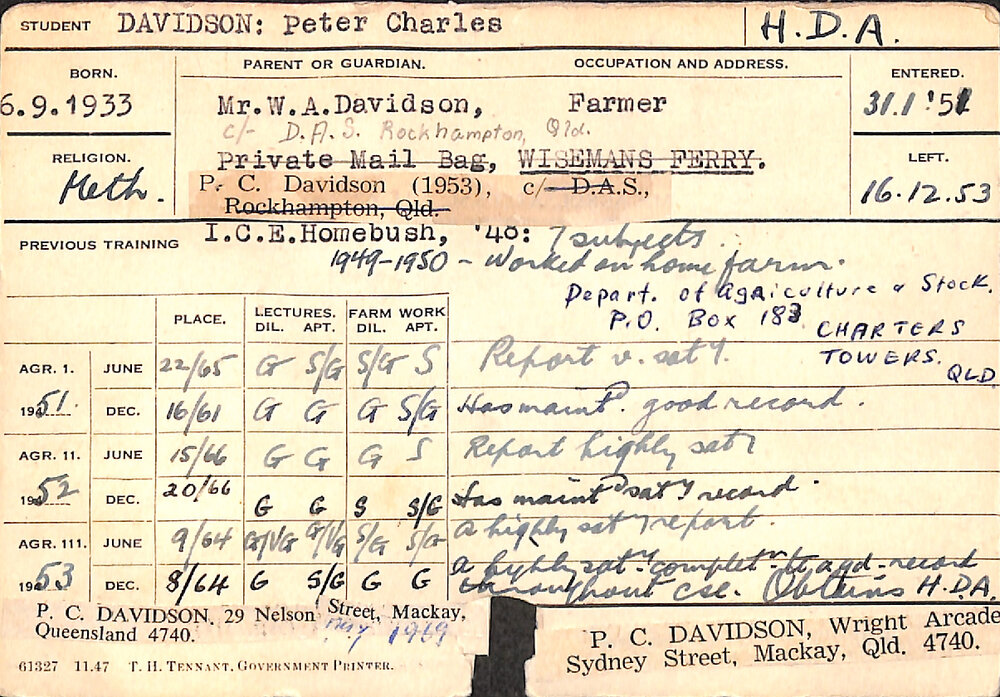 STUDENT DAVIDSON: Peter Charles H.D.A.
BORN. PARENT OR GUARDIAN. OCCUPATION AND ADDRESS. ENTERED.
6.9.1933 Mr.W.A.Davidson, Farmer 31.1.'51
c/- D.A.S. Rockhampton, Qld.
RELIGION. Private Mail Bag, WISEMANS FERRY. LEFT.
Meth. P. C. Davidson (1953), c/- D.A.S., 16.12.53
Rockhampton, Qld.
PREVIOUS TRAINING I.C.E.Homebush, '48: 7 subjects.
1949-1950 - Worked on home farm.
Depart. of Agriculture & Stock.
P.O. Box 183 CHARTERS
TOWERS.
QLD
PLACE. LECTURES. FARM WORK
DIL. APT. DIL. APT.
AGR. 1. JUNE 22/65 G S/G S/G S Report v. sat y.
1951. DEC. 16/61 G G G S/G Has maint d. good record.
AGR. 11. JUNE 15/66 G G G S Report highly sat y
1952 DEC. 20/66 G G S S/G Has maint d sat y record.
AGR. 111. JUNE 9/64 G/VG G/VG S/G S/G A highly sat y report.
1953 DEC. 8/64 G S/G G G A highly sat y complet n to a gd. record
throughout cse. Obtains H.D.A.
P. C. DAVIDSON, 29 Nelson Street, Mackay,
Queensland 4740. May 1969
P. C. DAVIDSON, Wright Arcade
Sydney Street, Mackay, Qld. 4740.
61327 11.47 T. H. TENNANT, GOVERNMENT PRINTER.